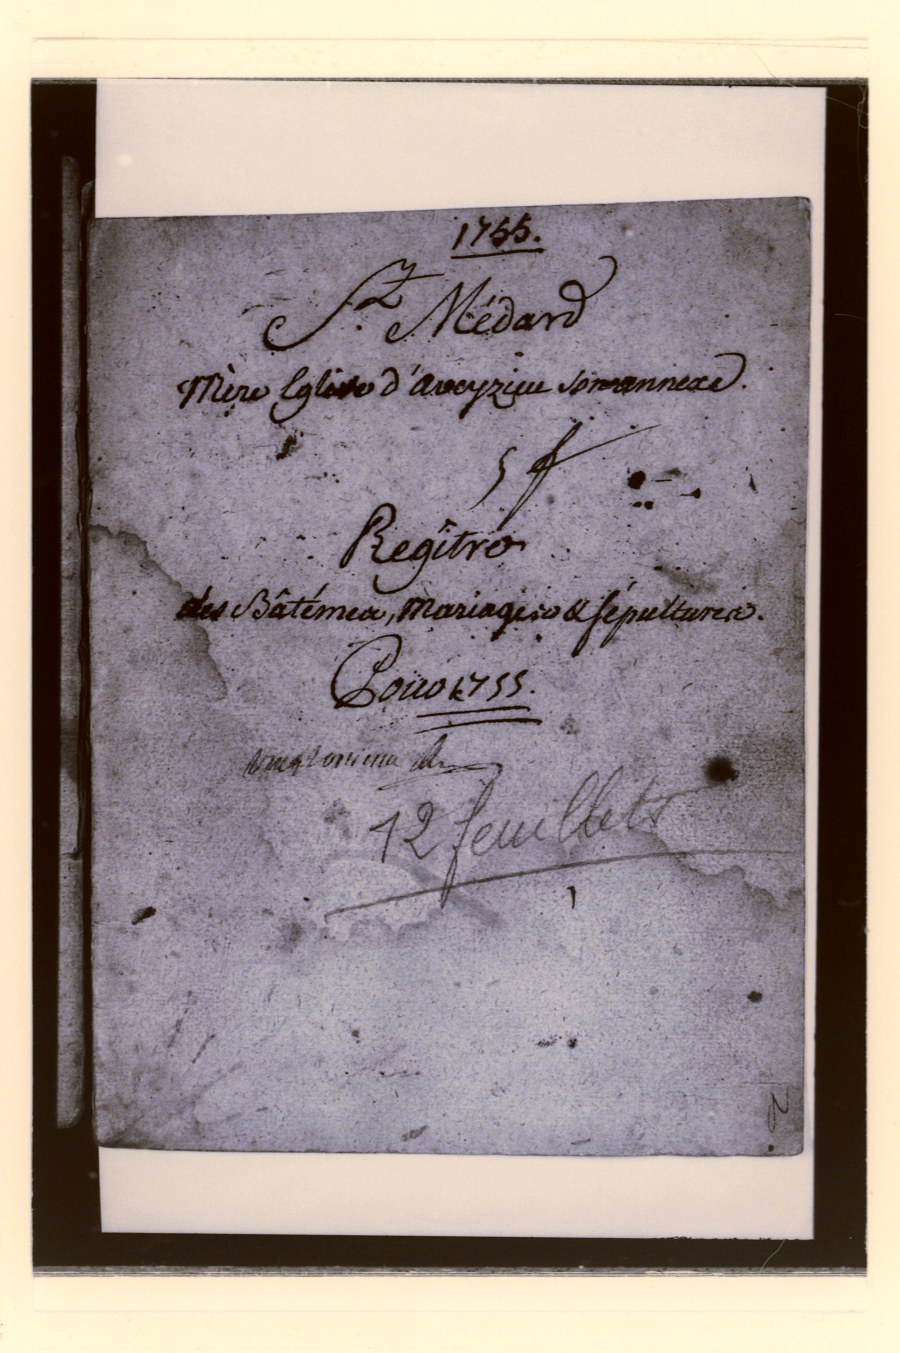 1755.
St. Médard
Mère Eglise d'Aveyzieu son annexe.
5 f
Regîtres
des Bâtémes, Mariages & sépultures.
Pour 1755.
12 feuillets
2